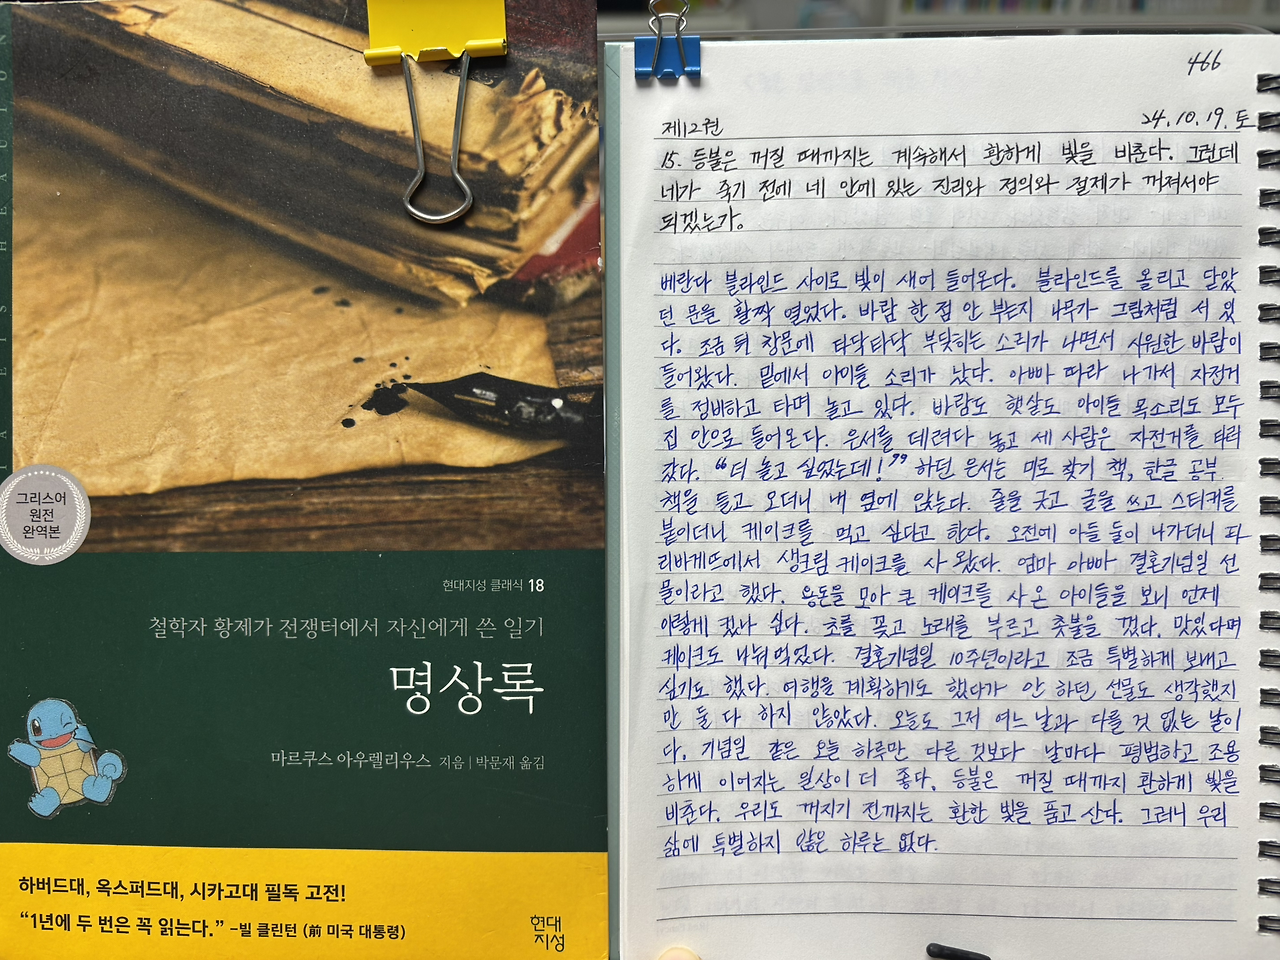 그리스어
원전
완역본
현대지성 클래식 18
철학자 황제가 전쟁터에서 자신에게 쓴 일기
명상록
마르쿠스 아우렐리우스 지음 | 박문재 옮김
하버드대, 옥스퍼드대, 시카고대 필독 고전!
“1년에 두 번은 꼭 읽는다.” -빌 클린턴 (前 미국 대통령)
현대
지성
466
제12권 24.10.19.토
15. 등불은 꺼질 때까지는 계속해서 환하게 빛을 비춘다. 그런데
네가 죽기 전에 네 안에 있는 진리와 정의와 절제가 꺼져서야
되겠는가.
베란다 블라인드 사이로 빛이 새어 들어온다. 블라인드를 올리고 닫았
던 문을 활짝 열었다. 바람 한 점 안 부는지 나무가 그림처럼 서 있
다. 조금 뒤 창문에 타닥타닥 부딪히는 소리가 나면서 시원한 바람이
들어왔다. 밑에서 아이들 소리가 났다. 아빠 따라 나가서 자전거
를 정비하고 타며 놀고 있다. 바람도 햇살도 아이들 목소리도 모두
집 안으로 들어온다. 은서를 데려다 놓고 세 사람은 자전거를 타러
갔다. “더 놀고 싶었는데!” 하던 은서는 미로 찾기 책, 한글 공부
책을 들고 오더니 내 옆에 앉는다. 줄을 긋고 글을 쓰고 스티커를
붙이더니 케이크를 먹고 싶다고 한다. 오전에 아들 둘이 나가더니 파
리바게뜨에서 생크림 케이크를 사 왔다. 엄마 아빠 결혼기념일 선
물이라고 했다. 용돈을 모아 큰 케이크를 사 온 아이들을 보니 언제
이렇게 컸나 싶다. 초를 꽂고 노래를 부르고 촛불을 껐다. 맛있다며
케이크도 나눠 먹었다. 결혼기념일 10주년이라고 조금 특별하게 보내고
싶기도 했다. 여행을 계획하기도 했다가 안 하던 선물도 생각했지
만 둘 다 하지 않았다. 오늘도 그저 여느 날과 다를 것 없는 날이
다. 기념일 같은 오늘 하루만 다른 것보다 날마다 평범하고 조용
하게 이어지는 일상이 더 좋다. 등불은 꺼질 때까지 환하게 빛을
비춘다. 우리도 꺼지기 전까지는 환한 빛을 품고 산다. 그러니 우리
삶에 특별하지 않은 하루는 없다.